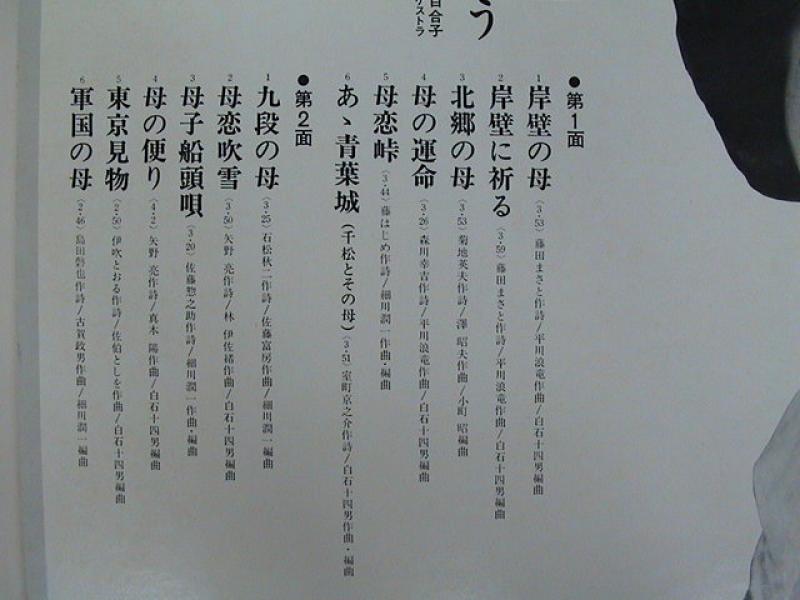 う
百合子
ケストラ
●第1面
1 岸壁の母 (3・53) 藤田まさと作詩/平川浪竜作曲/白石十四男編曲
2 岸壁に祈る (3・59) 藤田まさと作詩/平川浪竜作曲/白石十四男編曲
3 北郷の母 (3・53) 菊地英夫作詩/澤 昭夫作曲/小町 昭編曲
4 母の運命 (3・26) 森川幸吉作詩/平川浪竜作曲/白石十四男編曲
5 母恋峠 (3・44) 藤はじめ作詩/細川潤一作曲・編曲
6 あゝ青葉城(千松とその母) (3・51) 室町京之介作詩/白石十四男作曲・編曲
●第2面
1 九段の母 (3・25) 石松秋二作詩/佐藤富房作曲/細川潤一編曲
2 母恋吹雪 (3・50) 矢野 亮作詩/林 伊佐緒作曲/白石十四男編曲
3 母子船頭唄 (3・20) 佐藤惣之助作詩/細川潤一作曲・編曲
4 母の便り (4・2) 矢野 亮作詩/真木 陽作曲/白石十四男編曲
5 東京見物 (2・50) 伊吹とおる作詩/佐伯としを作曲/白石十四男編曲
6 軍国の母 (2・46) 島田磬也作詩/古賀政男作曲/細川潤一編曲